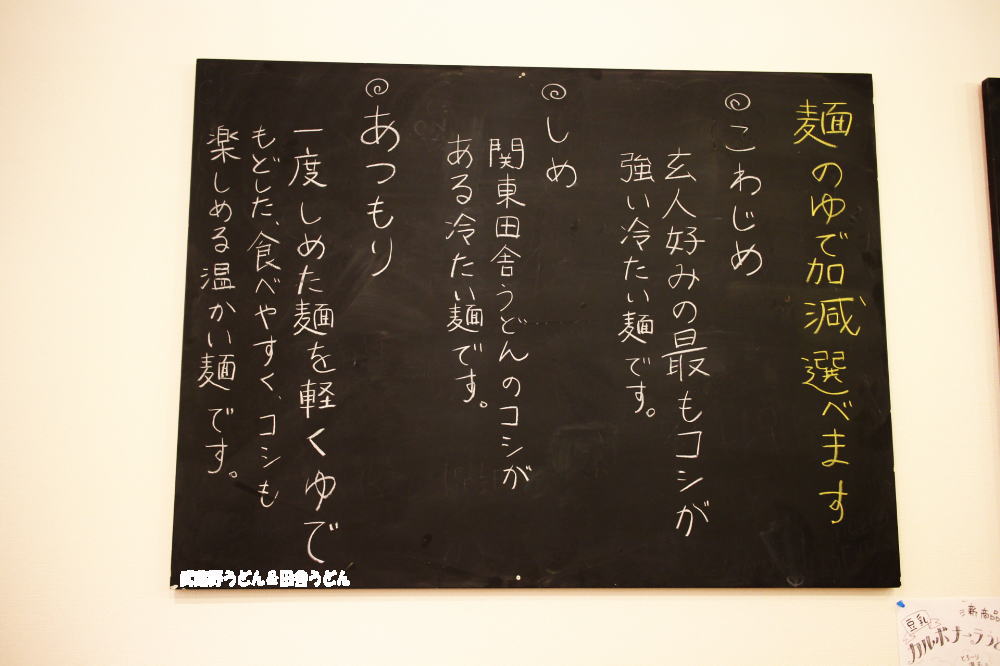 麺のゆで加減選べます
◎こわじめ
玄人好みの最もコシが
強い冷たい麺です。
◎しめ
関東田舎うどんのコシが
ある冷たい麺です。
◎あつもり
一度しめた麺を軽くゆで
もどした、食べやすく、コシも
楽しめる温かい麺です。
武蔵野うどん&田舎うどん
新商品
豆乳
カルボナーラう